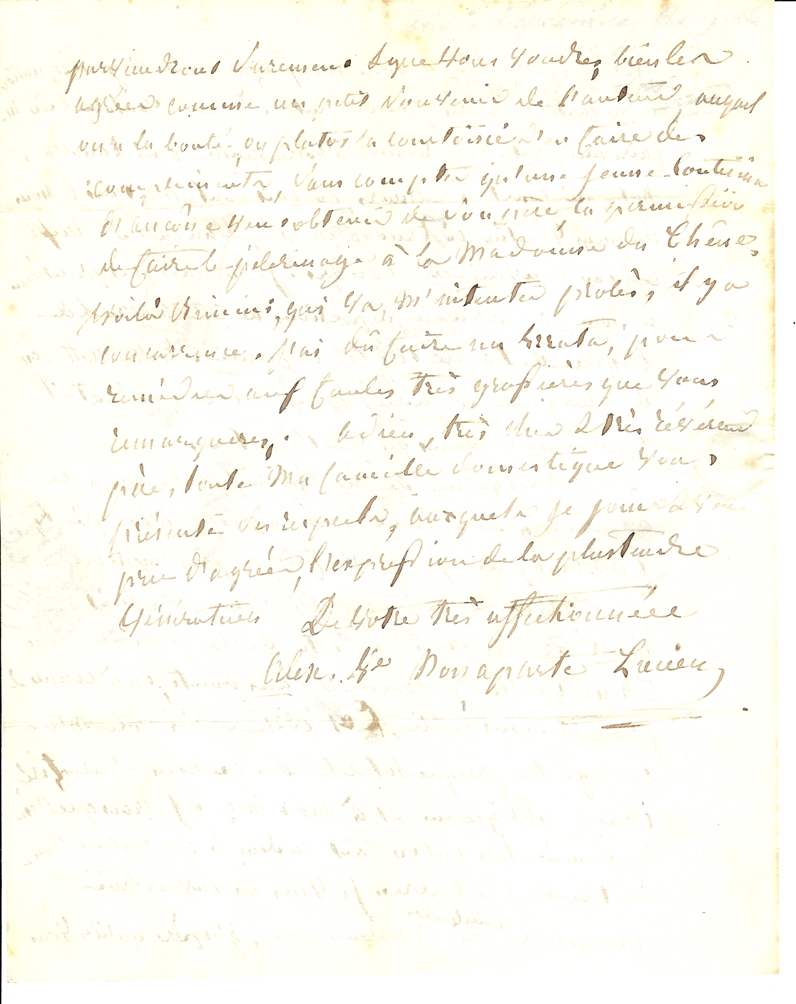 parviendront surement & que vous voudrez bien les
agréer comme un petit souvenir de l'auteur, auquel
on a la bonté, ou plutot la courtoisie de faire des
compliments, sans compter qu'une jeune
d'ancône veut obtenir de son père la permission
de faire le pélérinage à la Madonne du Chêne,
voilà Rimini, qui va m'intenter procès, il y a
concurrence. J'ai dû faire un Errata, pour
remédier aux fautes très grossières que vous
remarquerez. adieu, très cher & très révérend
père, toute ma famille domestique vous
présente ses respects, auxquels je joins & vous
prie d'agréer, l'expression de la plus tendre
vénération De votre très affectionnéee
Alex. Ve Bonaparte Lucien